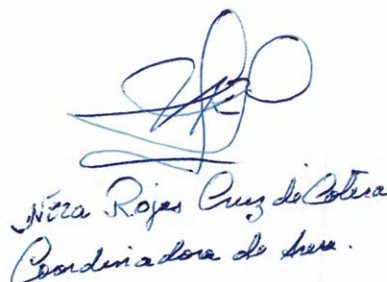 Rojas Cruz de Cotera
Coordinadora de Area.